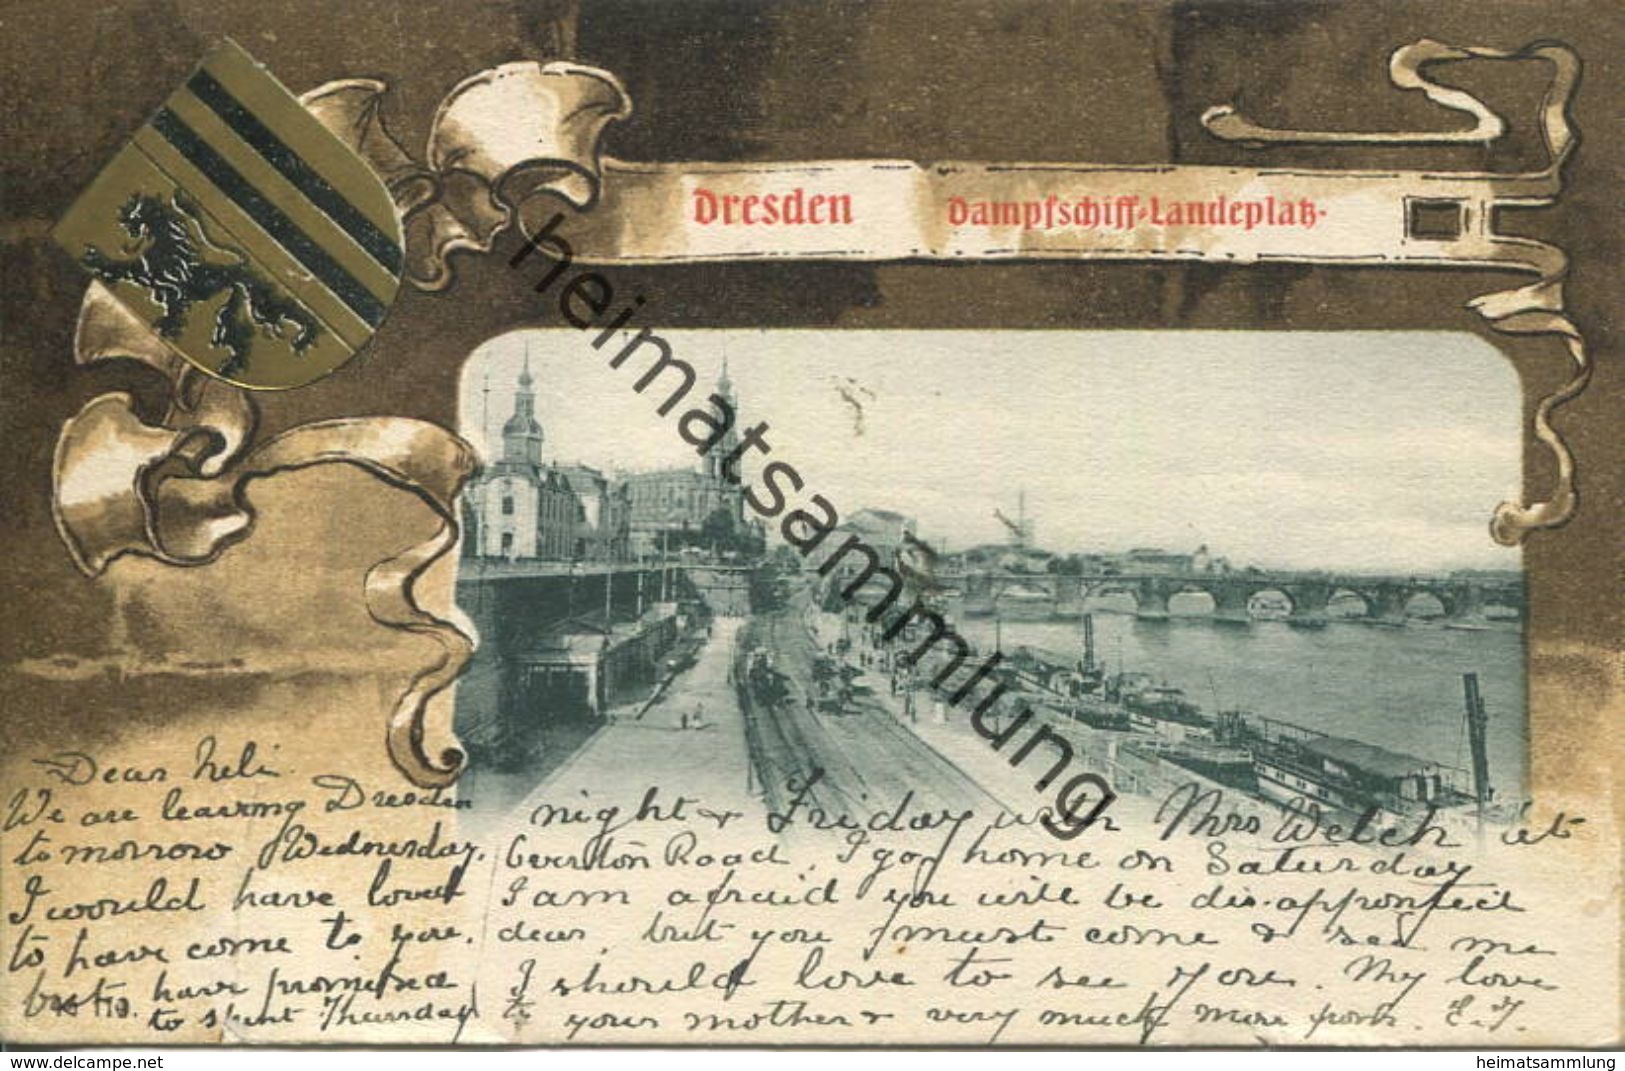 Dresden Dampfschiff-Landeplatz.
heimatsammlung
Dear Neli.
We are leaving Dresden
tomorrow Wednesday.
I would have loved
to have come to you.
but have promised
to spent Thursday
No 119.
night & Friday with Mrs Welch at
Road, I go home on Saturday
I am afraid you will be disappointed
dear, but you must come & see me
I should love to see you. My love
to your mother & very much more from. E.T.
www.delcampe.net
heimatsammlung